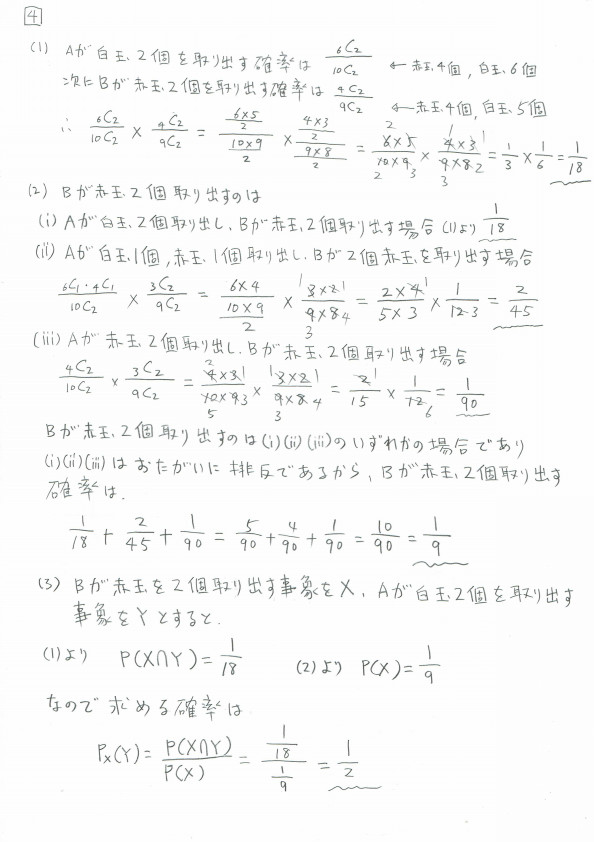 4
(1) Aが白玉2個を取り出す確率は 6C2/10C2 ← 赤玉4個, 白玉6個
次にBが赤玉2個を取り出す確率は 4C2/9C2 ← 赤玉4個, 白玉5個
∴ 6C2/10C2 × 4C2/9C2 = (6×5/2)/(10×9/2) × (4×3/2)/(9×8/2) = 6×5/10×9 × 4×3/9×8 = 1/3 × 1/6 = 1/18
(2) Bが赤玉2個取り出すのは
(i) Aが白玉2個取り出し、Bが赤玉2個取り出す場合 (1)より 1/18
(ii) Aが白玉1個, 赤玉1個取り出し、Bが2個赤玉を取り出す場合
6C1・4C1/10C2 × 3C2/9C2 = 6×4/(10×9/2) × 3×2/9×8 = 2×4/5×3 × 1/12 = 2/45
(iii) Aが赤玉2個取り出し、Bが赤玉2個取り出す場合
4C2/10C2 × 3C2/9C2 = 4×3/10×9 × 3×2/9×8 = 2/15 × 1/12 = 1/90
Bが赤玉2個取り出すのは(i)(ii)(iii)のいずれかの場合であり
(i)(ii)(iii)はおたがいに排反であるから、Bが赤玉2個取り出す
確率は.
1/18 + 2/45 + 1/90 = 5/90 + 4/90 + 1/90 = 10/90 = 1/9
(3) Bが赤玉を2個取り出す事象をX, Aが白玉2個を取り出す
事象をYとすると.
(1)より P(X∩Y) = 1/18 (2)より P(X) = 1/9
なので求める確率は
PX(Y) = P(X∩Y)/P(X) = (1/18)/(1/9) = 1/2